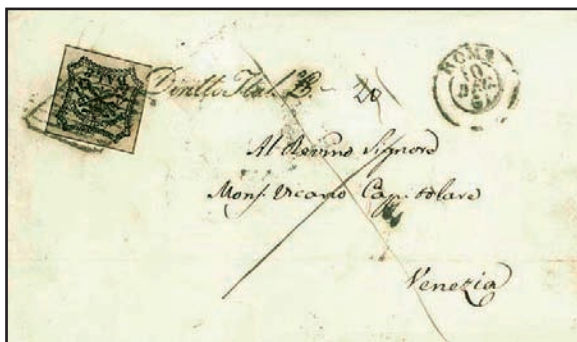 Diritto Ital. 20
ROMA
10
DEC
61
Al Revmo Signore
Monsr Vicario Capitolare
Venezia